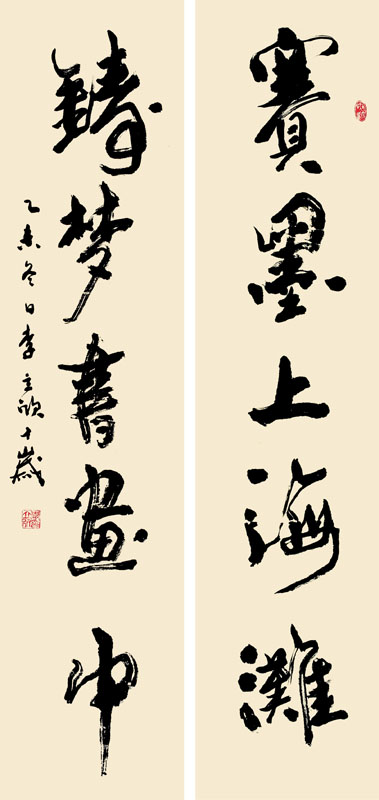 賽墨上海灘
鑄梦書畫中
乙未冬日李十歲